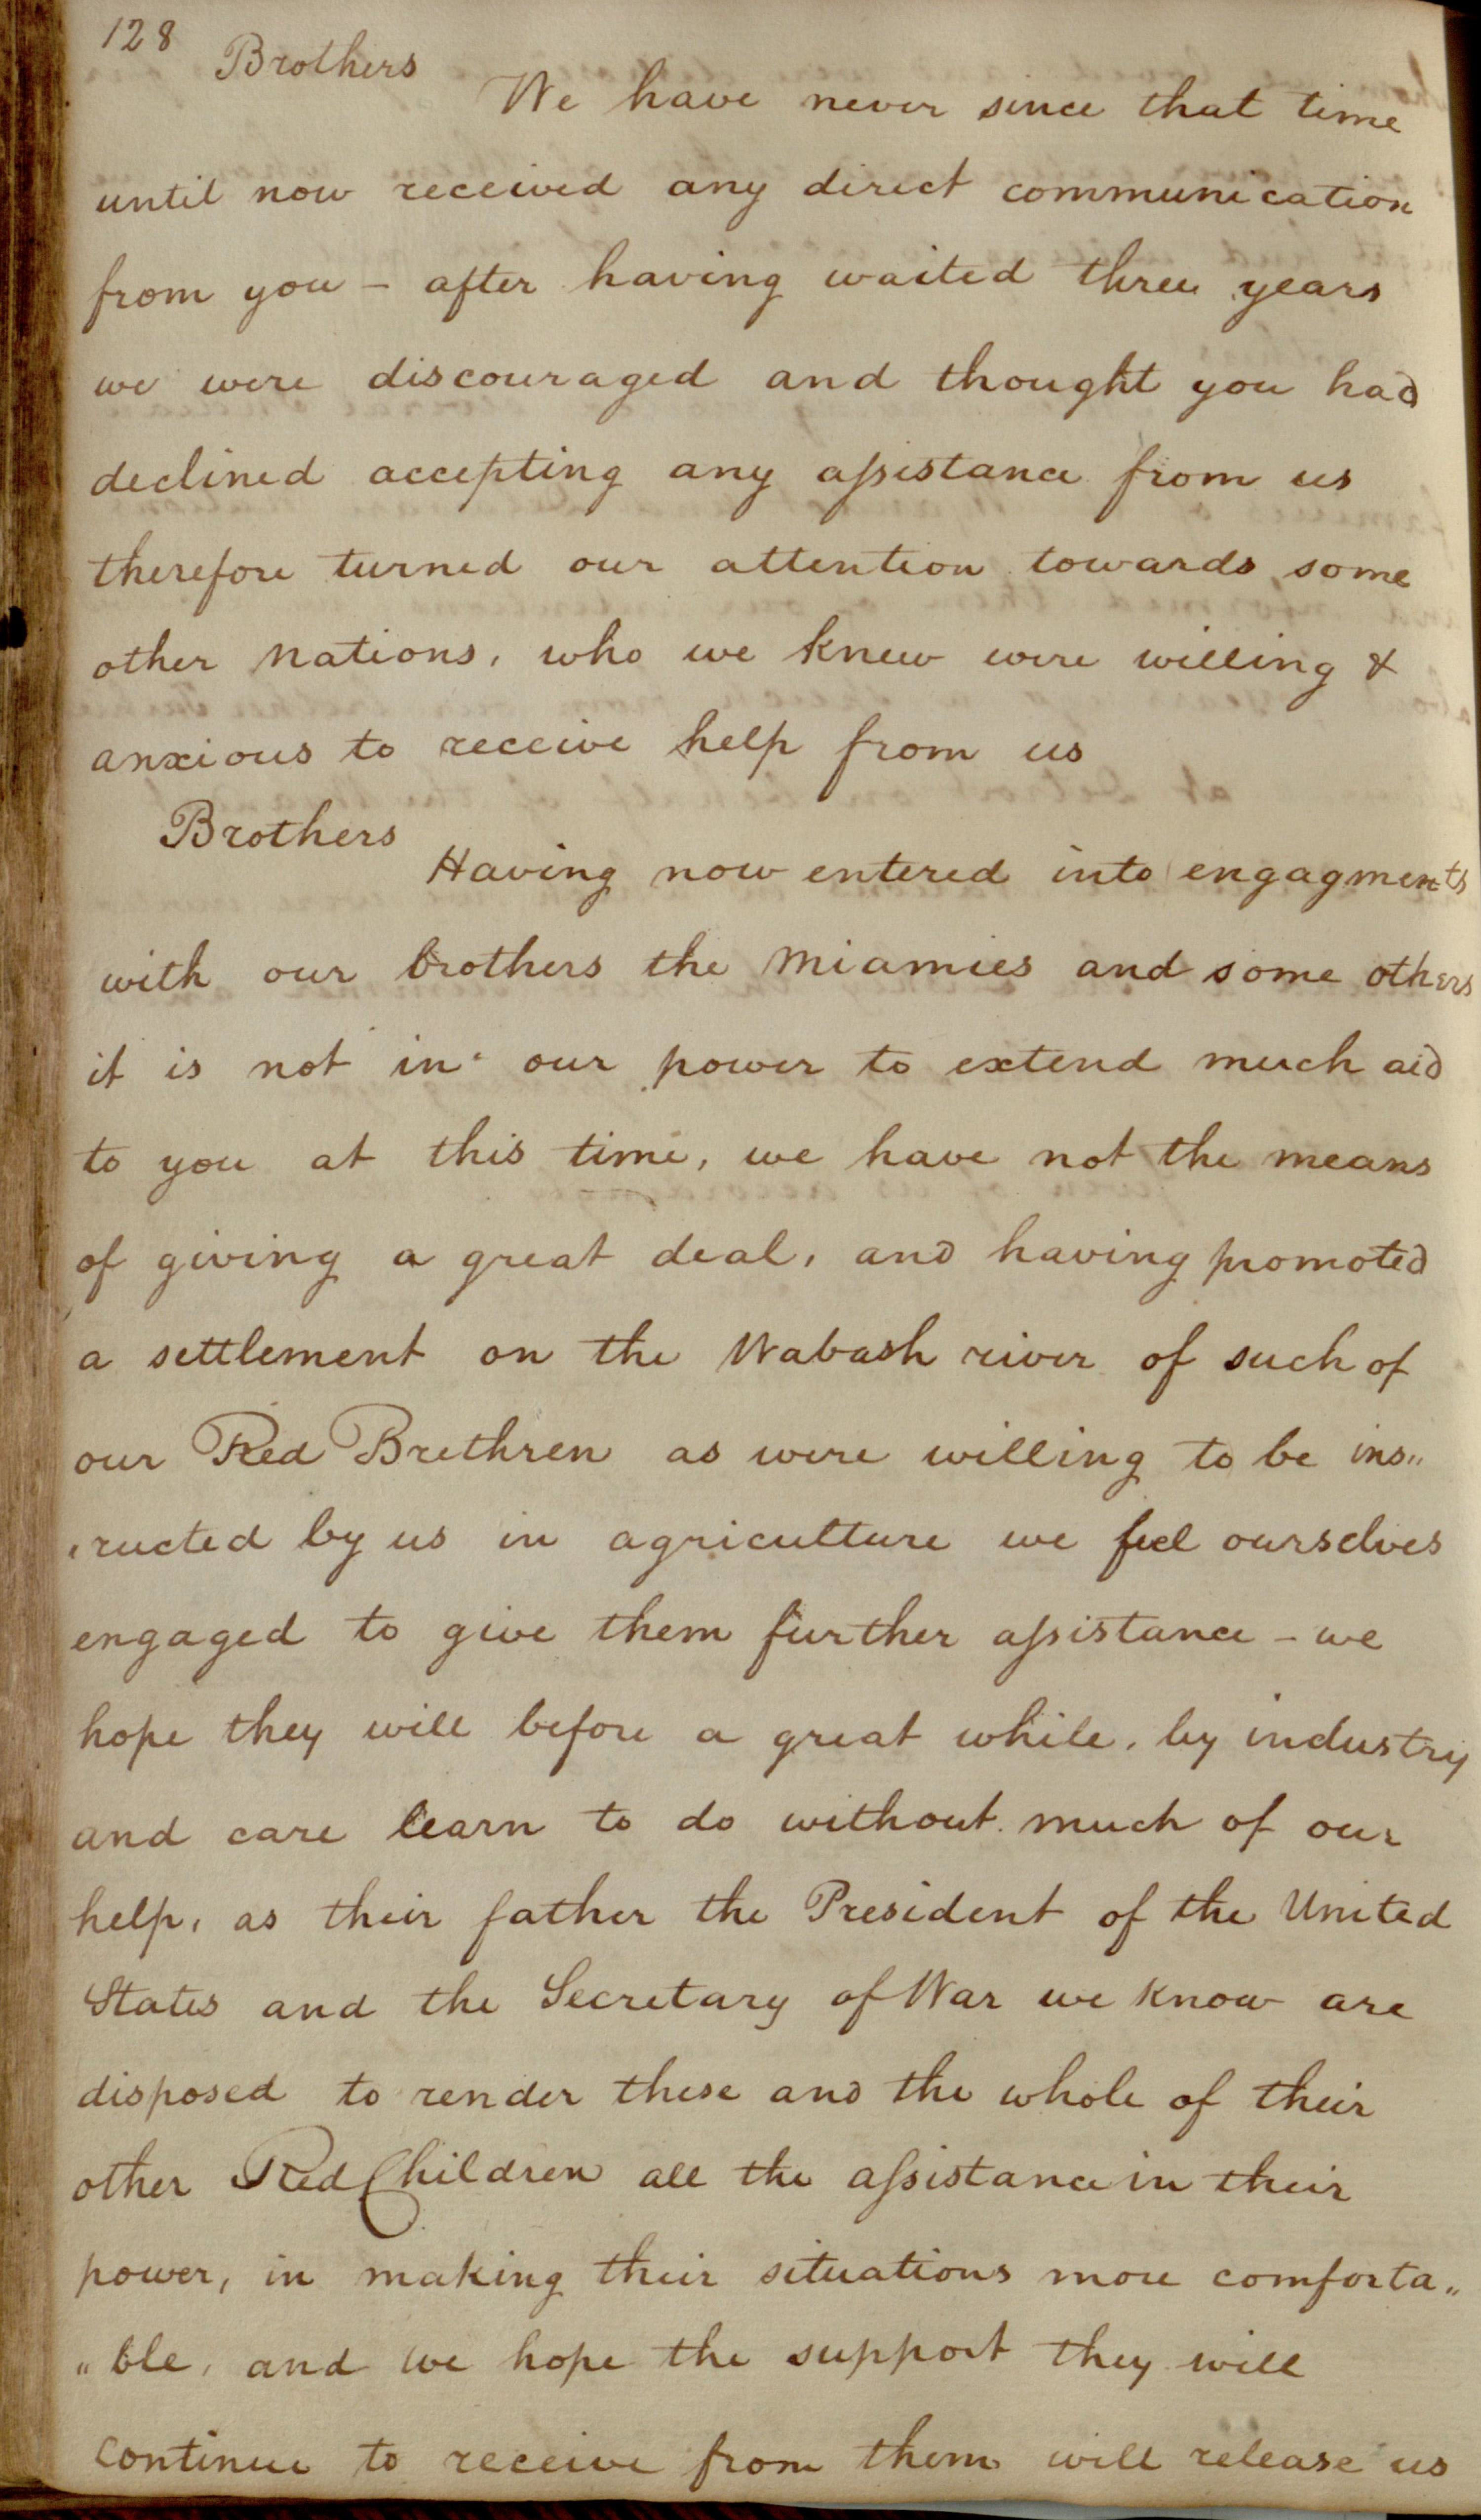 128
Brothers
We have never since that time
until now received any direct communication
from you – after having waited three years
we were discouraged and thought you had
declined accepting any assistance from us
therefore turned our attention towards some
other Nations, who we knew were willing &
anxious to receive help from us
Brothers
Having now entered into engagments
with our brothers the Miamies and some others
it is not in our power to extend much aid
to you at this time, we have not the means
of giving a great deal, and having promoted
a settlement on the Wabash river of such of
our Red Brethren as were willing to be ins„
ructed by us in agriculture we feel ourselves
engaged to give them further assistance – we
hope they will before a great while, by industry
and care learn to do without much of our
help, as their father the President of the United
States and the Secretary of War we know are
disposed to render these and the whole of their
other Red Children all the assistance in their
power, in making their situations more comforta„
„ble, and we hope the support they will
continue to receive from them will release us